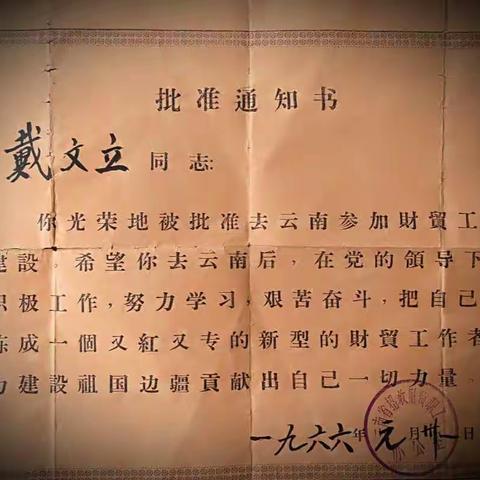 批准通知书
戴文立同志:
你光荣地被批准去云南参加财貿工
建設。希望你去云南后，在党的領导下
积极工作，努力学习，艰苦奋斗，把自己
炼成一個又紅又专的新型的財貿工作者
为建設祖国边疆貢献出自己一切力量。
一九六六年元月卅一日